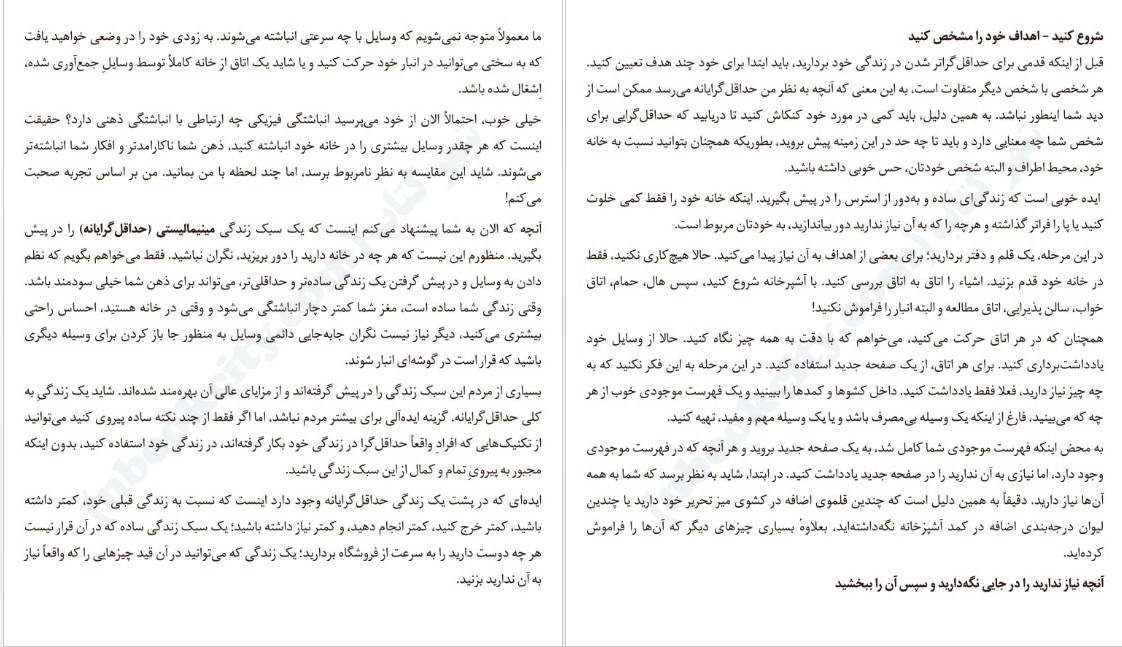 ما معمولاً متوجه نمی‌شویم که وسایل با چه سرعتی انباشته می‌شوند. به زودی خود را در وضعی خواهید یافت
که به سختی می‌توانید در انبار خود حرکت کنید و یا شاید یک اتاق از خانه کاملاً توسط وسایلِ جمع‌آوری شده،
اِشغال شده باشد.
خیلی خوب، احتمالاً الان از خود می‌پرسید انباشتگی فیزیکی چه ارتباطی با انباشتگی ذهنی دارد؟ حقیقت
اینست که هر چقدر وسایل بیشتری را در خانه خود انباشته کنید، ذهن شما ناکارامدتر و افکار شما انباشته‌تر
می‌شوند. شاید این مقایسه به نظر نامربوط برسد، اما چند لحظه با من بمانید. من بر اساس تجربه صحبت
می‌کنم!
آنچه که الان به شما پیشنهاد می‌کنم اینست که یک سبک زندگی مینیمالیستی (حداقل‌گرایانه) را در پیش
بگیرید. منظورم این نیست که هر چه در خانه دارید را دور بریزید، نگران نباشید. فقط می‌خواهم بگویم که نظم
دادن به وسایل و در پیش گرفتن یک زندگی ساده‌تر و حداقلی‌تر، می‌تواند برای ذهن شما خیلی سودمند باشد.
وقتی زندگی شما ساده است، مغز شما کمتر دچار انباشتگی می‌شود و وقتی در خانه هستید، احساس راحتی
بیشتری می‌کنید، دیگر نیاز نیست نگران جابه‌جایی دائمی وسایل به منظور جا باز کردن برای وسیله دیگری
باشید که قرار است در گوشه‌ای انبار شوند.
بسیاری از مردم این سبک زندگی را در پیش گرفته‌اند و از مزایای عالی آن بهره‌مند شده‌اند. شاید یک زندگیِ به
کلی حداقل‌گرایانه، گزینه ایده‌آلی برای بیشتر مردم نباشد، اما اگر فقط از چند نکته ساده پیروی کنید می‌توانید
از تکنیک‌هایی که افرادِ واقعاً حداقل‌گرا در زندگی خود بکار گرفته‌اند، در زندگی خود استفاده کنید، بدون اینکه
مجبور به پیرویِ تمام و کمال از این سبک زندگی باشید.
ایده‌ای که در پشت یک زندگی حداقل‌گرایانه وجود دارد اینست که نسبت به زندگی قبلی خود، کمتر داشته
باشید، کمتر خرج کنید، کمتر انجام دهید، و کمتر نیاز داشته باشید؛ یک سبک زندگی ساده که در آن قرار نیست
هر چه دوست دارید را به سرعت از فروشگاه بردارید؛ یک زندگی که می‌توانید در آن قید چیزهایی را که واقعاً نیاز
به آن ندارید بزنید.
شروع کنید – اهداف خود را مشخص کنید
قبل از اینکه قدمی برای حداقل‌گراتر شدن در زندگی خود بردارید، باید ابتدا برای خود چند هدف تعیین کنید.
هر شخصی با شخص دیگر متفاوت است، به این معنی که آنچه به نظر من حداقل‌گرایانه می‌رسد ممکن است از
دید شما اینطور نباشد. به همین دلیل، باید کمی در مورد خود کنکاش کنید تا دریابید که حداقل‌گرایی برای
شخص شما چه معنایی دارد و باید تا چه حد در این زمینه پیش بروید، بطوریکه همچنان بتوانید نسبت به خانه
خود، محیط اطراف و البته شخص خودتان، حس خوبی داشته باشید.
ایده خوبی است که زندگی‌ای ساده و به‌دور از استرس را در پیش بگیرید. اینکه خانه خود را فقط کمی خلوت
کنید یا پا را فراتر گذاشته و هرچه را که به آن نیاز ندارید دور بیاندازید، به خودتان مربوط است.
در این مرحله، یک قلم و دفتر بردارید؛ برای بعضی از اهداف به آن نیاز پیدا می‌کنید. حالا هیچ‌کاری نکنید، فقط
در خانه خود قدم بزنید. اشیاء را اتاق به اتاق بررسی کنید. با آشپرخانه شروع کنید، سپس هال، حمام، اتاق
خواب، سالن پذیرایی، اتاق مطالعه و البته انبار را فراموش نکنید!
همچنان که در هر اتاق حرکت می‌کنید، می‌خواهم که با دقت به همه چیز نگاه کنید. حالا از وسایل خود
یادداشت‌برداری کنید. برای هر اتاق، از یک صفحه جدید استفاده کنید. در این مرحله به این فکر نکنید که به
چه چیز نیاز دارید، فعلا فقط یادداشت کنید. داخل کشوها و کمدها را ببینید و یک فهرست موجودی خوب از هر
چه که می‌بینید، فارغ از اینکه یک وسیله بی‌مصرف باشد و یا یک وسیله مهم و مفید، تهیه کنید.
به محض اینکه فهرست موجودی شما کامل شد، به یک صفحه جدید بروید و هر آنچه که در فهرست موجودی
وجود دارد، اما نیازی به آن ندارید را در صفحه جدید یادداشت کنید. در ابتدا، شاید به نظر برسد که شما به همه
آن‌ها نیاز دارید. دقیقاً به همین دلیل است که چندین قلموی اضافه در کشوی میز تحریر خود دارید یا چندین
لیوان درجه‌بندی اضافه در کمد آشپزخانه نگه‌داشته‌اید، بعلاوهٔ بسیاری چیزهای دیگر که آن‌ها را فراموش
کرده‌اید.
آنچه نیاز ندارید را در جایی نگه‌دارید و سپس آن را ببخشید